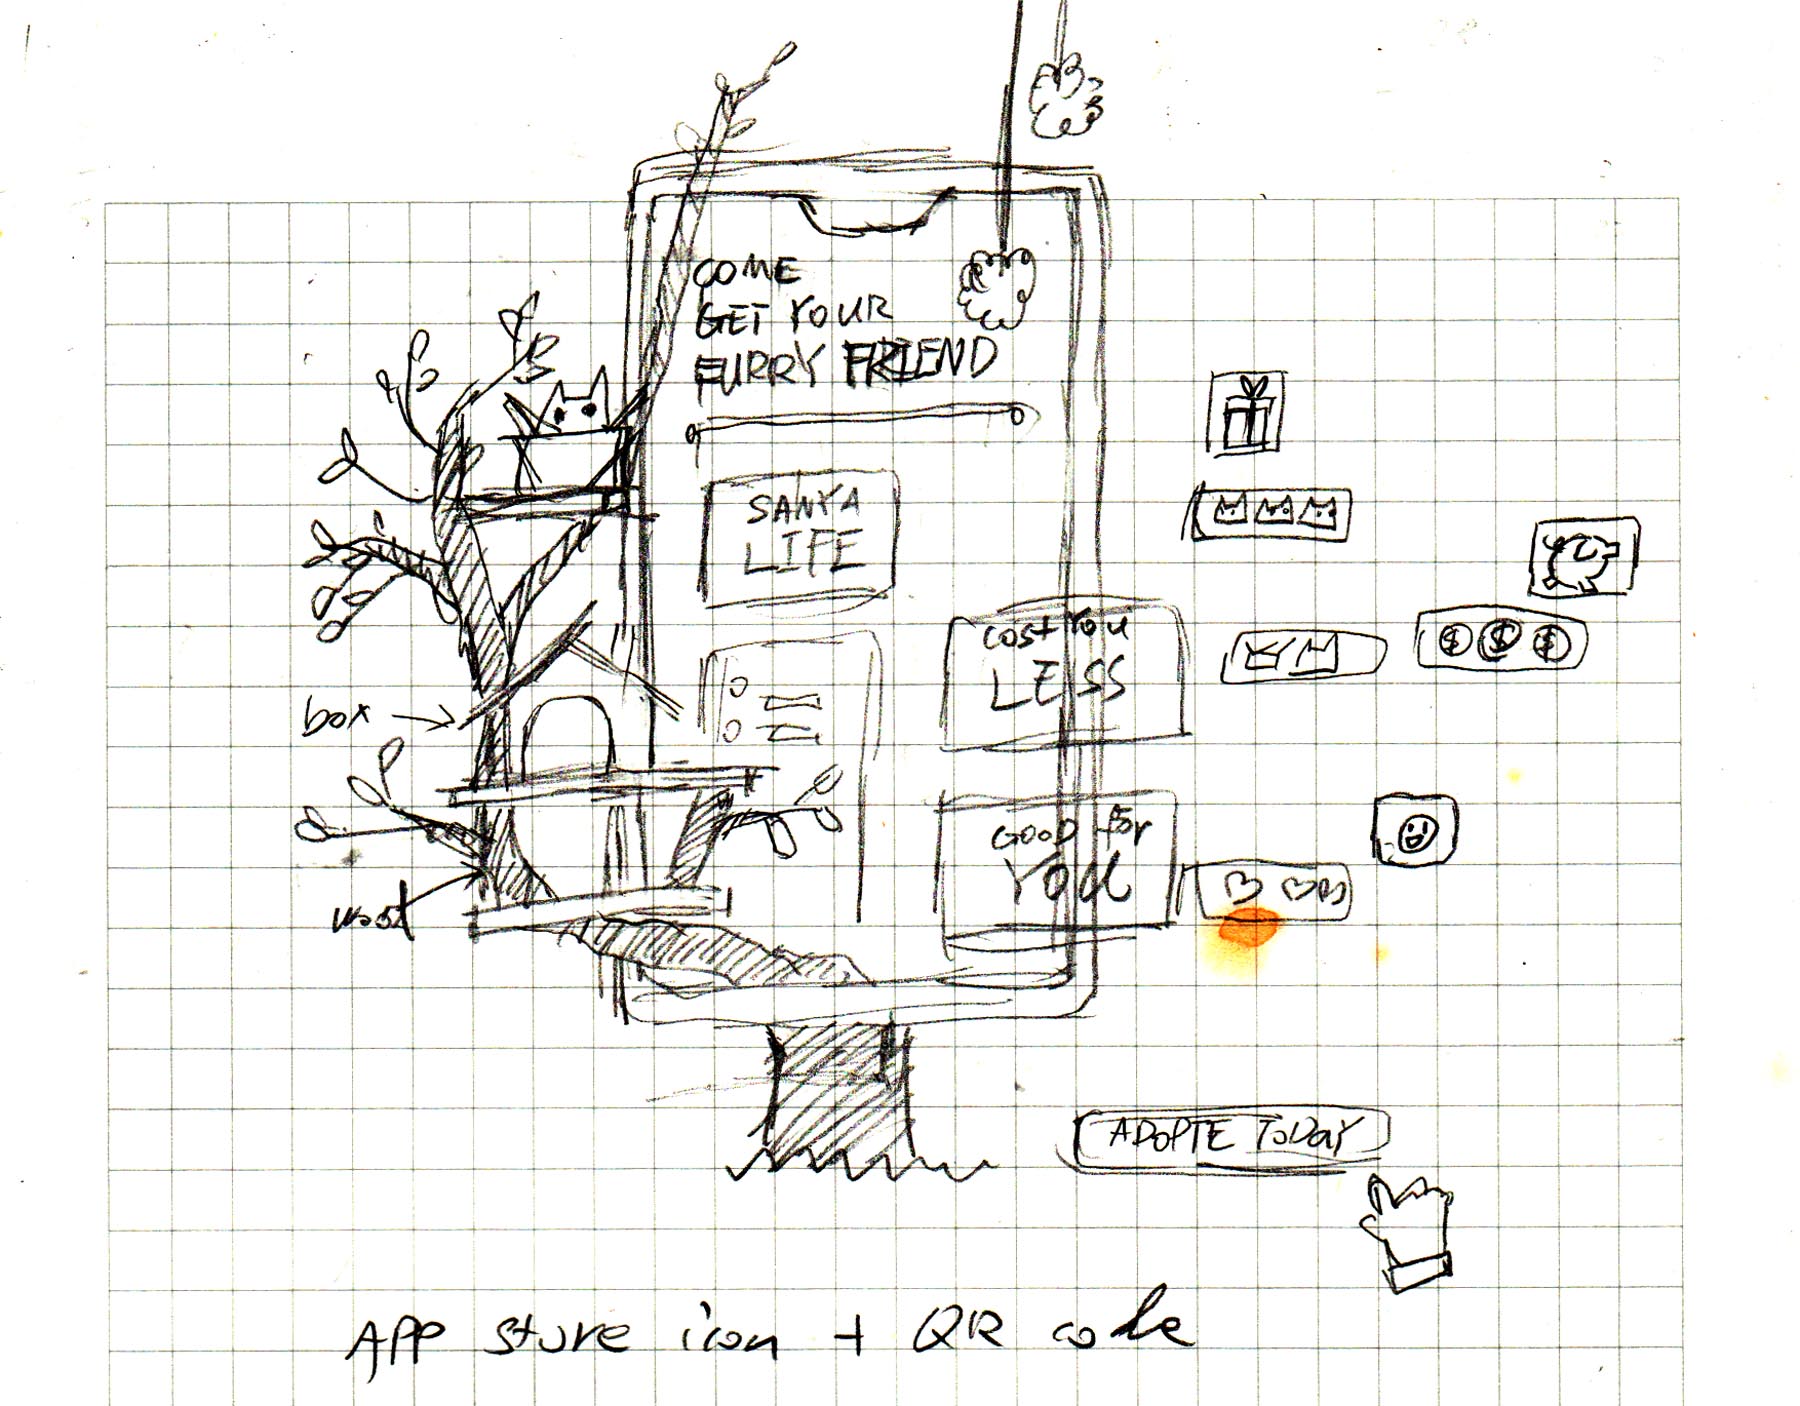 COME
GET YOUR
FURRY FRIEND
SANYA
LIFE
COST YOU
LESS
$ $ $
box
GOOD for
YOU
ADOPTE TODAY
APP store icon + QR code